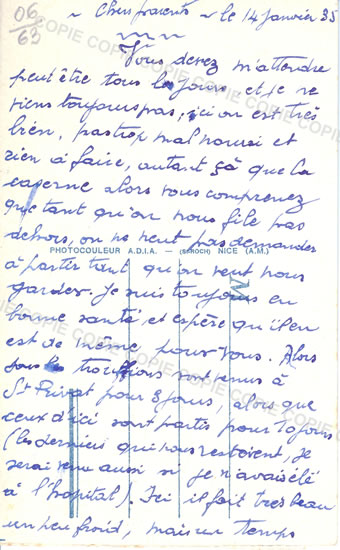 06
63
~ Chers parents ~ le 14 Janvier 35
Vous devez m'attendre
peut être tous les jours, et je ne
viens toujours pas, ici on est très
bien, pas trop mal nourri et
rien à faire, autant çà que la
caserne alors vous comprenez
que tant qu'on nous file pas
dehors, on ne veut pas demander
PHOTOCOULEUR A.D.I.A. — (SAROCH) NICE (A.M.)
à partir tant qu'on veut nous
garder. Je suis toujours en
bonne santé, et espère qu'il en
est de même pour vous. Alors
les trouffions sont venus à
St Privat pour 8 jours, alors que
ceux d'ici sont partis pour 10 jours
(les derniers qui nous restoient, je
serai venu aussi si je n'avais été
à l'hopital). Ici il fait tres beau
un peu froid, mais un temps
COPIE COPIE COPIE COPIE COPIE COPIE